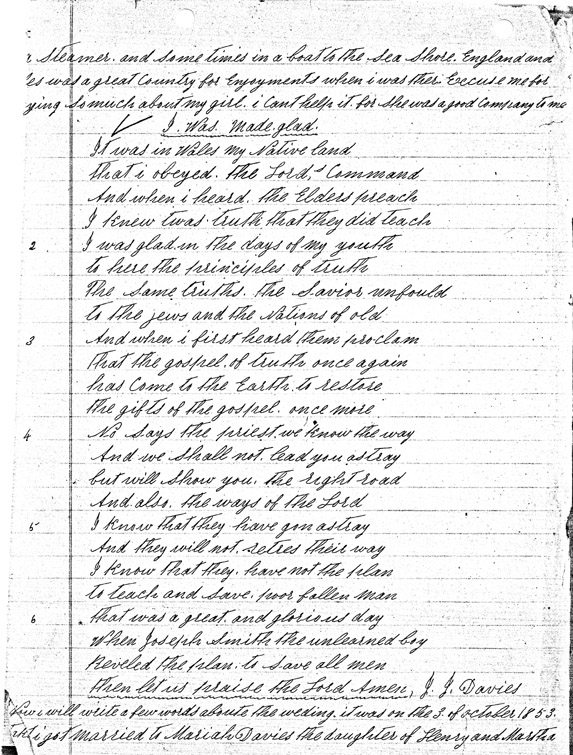 Steamer. and some times in a boat to the Sea Shore. England and
les was a great Country for Enjoyments when i was ther. Eccuse me for
ying so much about my girl. i Cant help it. for she was a good Company to me
I. Was. made glad.
It was in Wales my Native land
that i obeyed. the Lord,s Command
And when i heard. the Elders preach
I knew twas truth that they did teach
2 I was glad in the days of my youth
to here the principles of truth
The Same truths. the Savior unfould
to the jews and the Nations of old
3 And when i first heard them proclam
that the gospel. of truth once again
has Come to the Earth to restore
the gifts of the gospel. once more
4 No says the priest we know the way
And we shall not. lead you astray
but will show you. the right road
And also. the ways of the Lord
5 I know that they have gon astray
And they will not. setres their way
I know that they. have not the plan
to teach and save. poor fallen man
6 that was a great. and glorious day
When Joseph Smith the unlearned boy
Reveled the plan. to save all men
then let us praise the Lord Amen, J. J. Davies
Now i will write a few words aboute the weding. it was on the 3. of october 1853.
that i got married to Mariah Davies the daughter of Henry and Martha